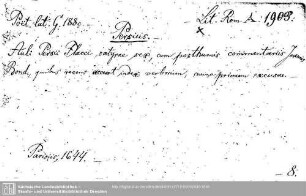 Poët. lat. G. 188.
Lit. Rom. A 1903.
Persius.
Auli Persii Flacci satyrae sex, cum posthumis commentariis Joan.
Bond, quibus recens accessit index verborum, nunc primum excusae.
Parisiis, 1644.
8.
Sächsische Landesbibliothek -
Staats- und Universitätsbibliothek Dresden